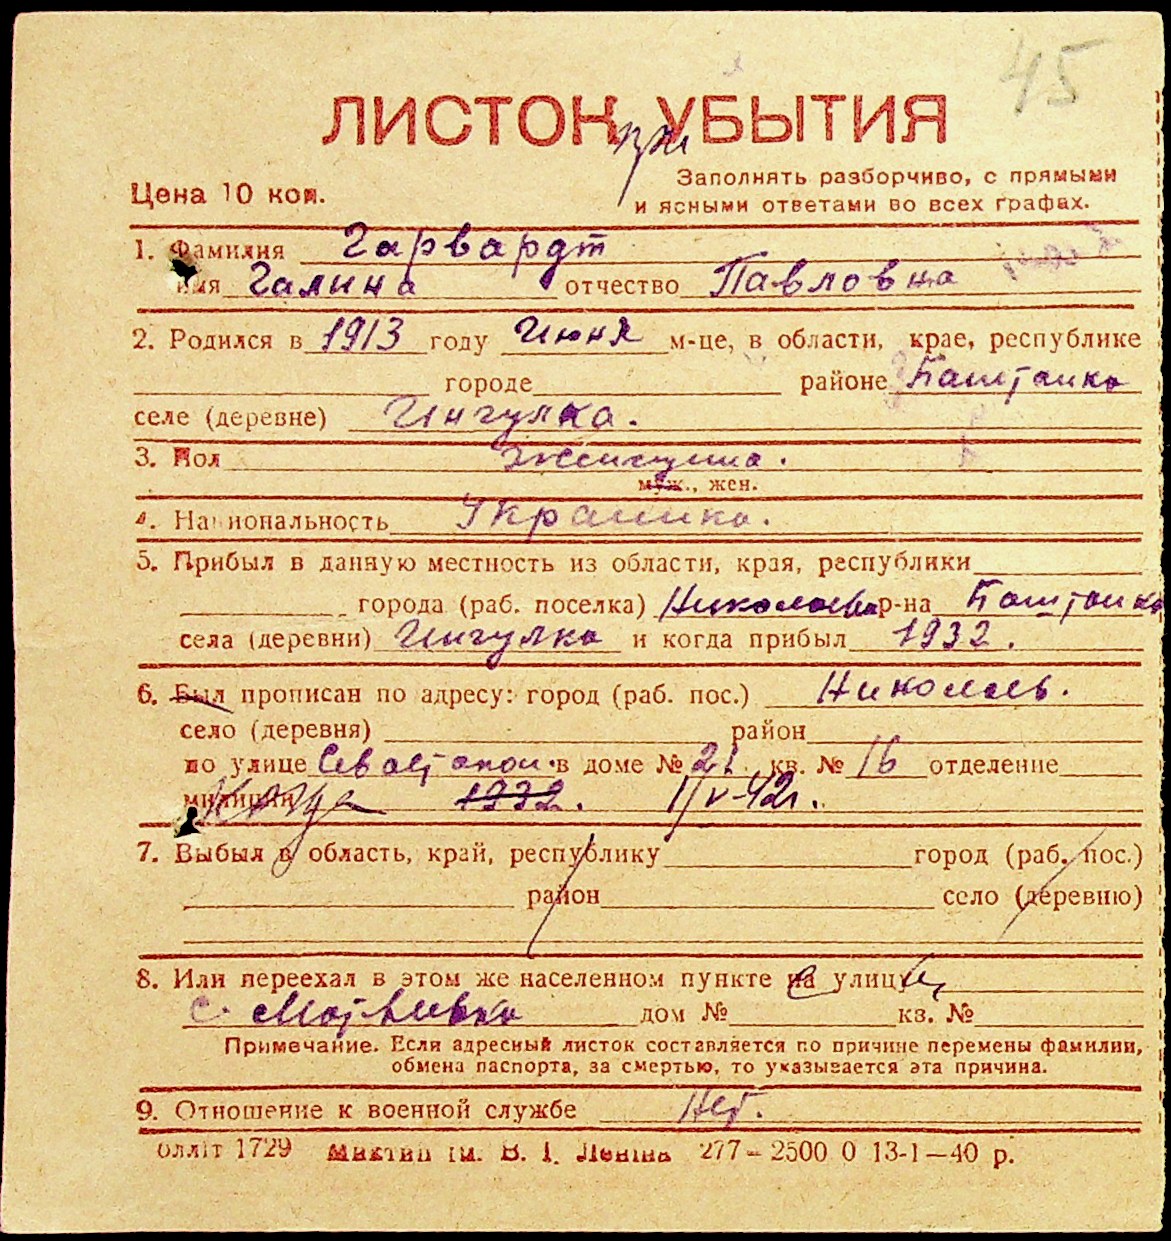 45
ЛИСТОК УБЫТИЯ
при
Цена 10 коп.
Заполнять разборчиво, с прямыми
и ясными ответами во всех графах.
1. Фамилия Гарвардт
имя Галина отчество Павловна
2. Родился в 1913 году Июня м-це, в области, крае, республике
городе районе Баштанка
селе (деревне) Ингулка.
3. Пол Женщина.
муж., жен.
4. Национальность Украинка.
5. Прибыл в данную местность из области, края, республики
города (раб. поселка) Николаева р-на Баштанка
села (деревни) Ингулка и когда прибыл 1932.
6. Был прописан по адресу: город (раб. пос.) Николаев.
село (деревня) район
по улице Севастопол. в доме № 21 кв. № 16 отделение
милиции Когда 1932. 1/V-42г.
7. Выбыл в область, край, республику город (раб. пос.)
район село (деревню)
8. Или переехал в этом же населенном пункте на с улицы
с. Матвеевка дом № кв. №
Примечание. Если адресный листок составляется по причине перемены фамилии,
обмена паспорта, за смертью, то указывается эта причина.
9. Отношение к военной службе Нет.
олліт 1729 ім. В. І. Леніна 277—2500 0 13-1—40 р.